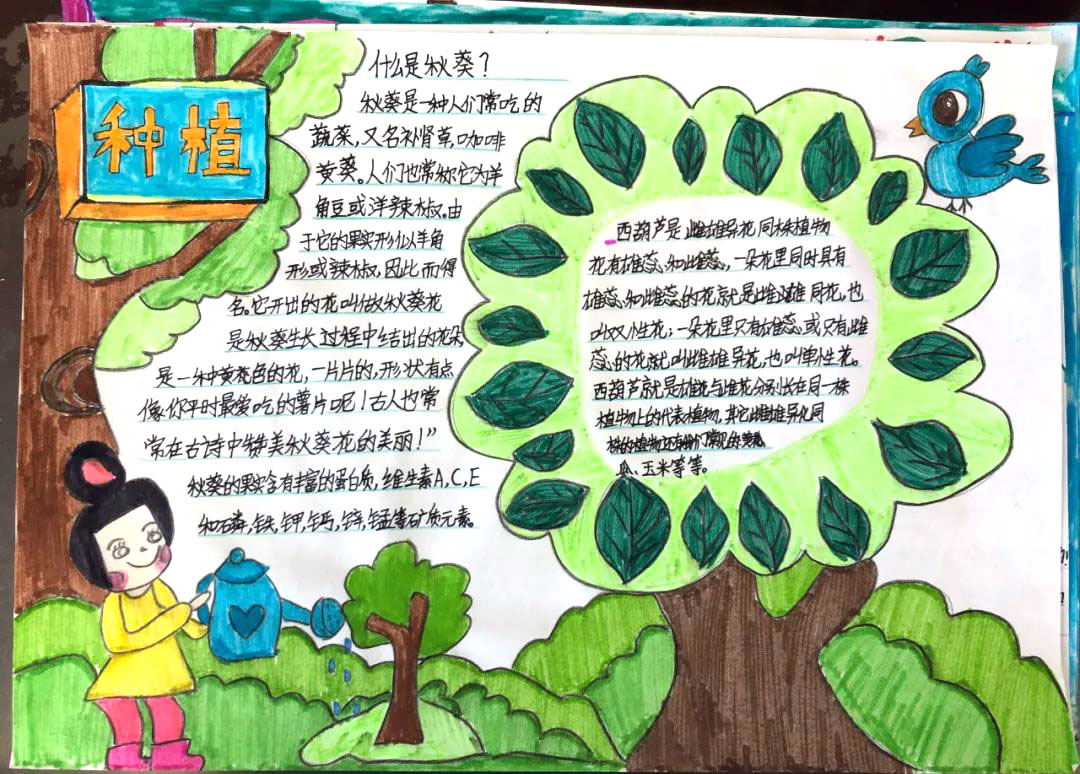 种植
什么是秋葵？
秋葵是一种人们常吃的
蔬菜，又名补肾草，咖啡
黄葵。人们也常称它为羊
角豆或洋辣椒。由
于它的果实形似羊角
形或辣椒，因此而得
名。它开出的花叫做秋葵花
是秋葵生长过程中结出的花朵
是一种黄颜色的花，一片片的，形状有点
像你平时最爱吃的薯片呢！古人也常
常在古诗中赞美秋葵花的美丽！”
秋葵的果实含有丰富的蛋白质，维生素A，C，E
和磷，铁，钾，钙，锌，锰等矿质元素。
西葫芦是雌雄异花同株植物
花有雄蕊和雌蕊，一朵花里同时具有
雄蕊和雌蕊的花就是雌雄同花，也
叫双性花；一朵花里只有雄蕊或只有雌
蕊的花就叫雌雄异花，也叫单性花。
西葫芦就是雄花与雌花分别长在同一株
植物上的代表植物，其它雌雄异花同
株的植物还有我们常见的黄
瓜、玉米等等。